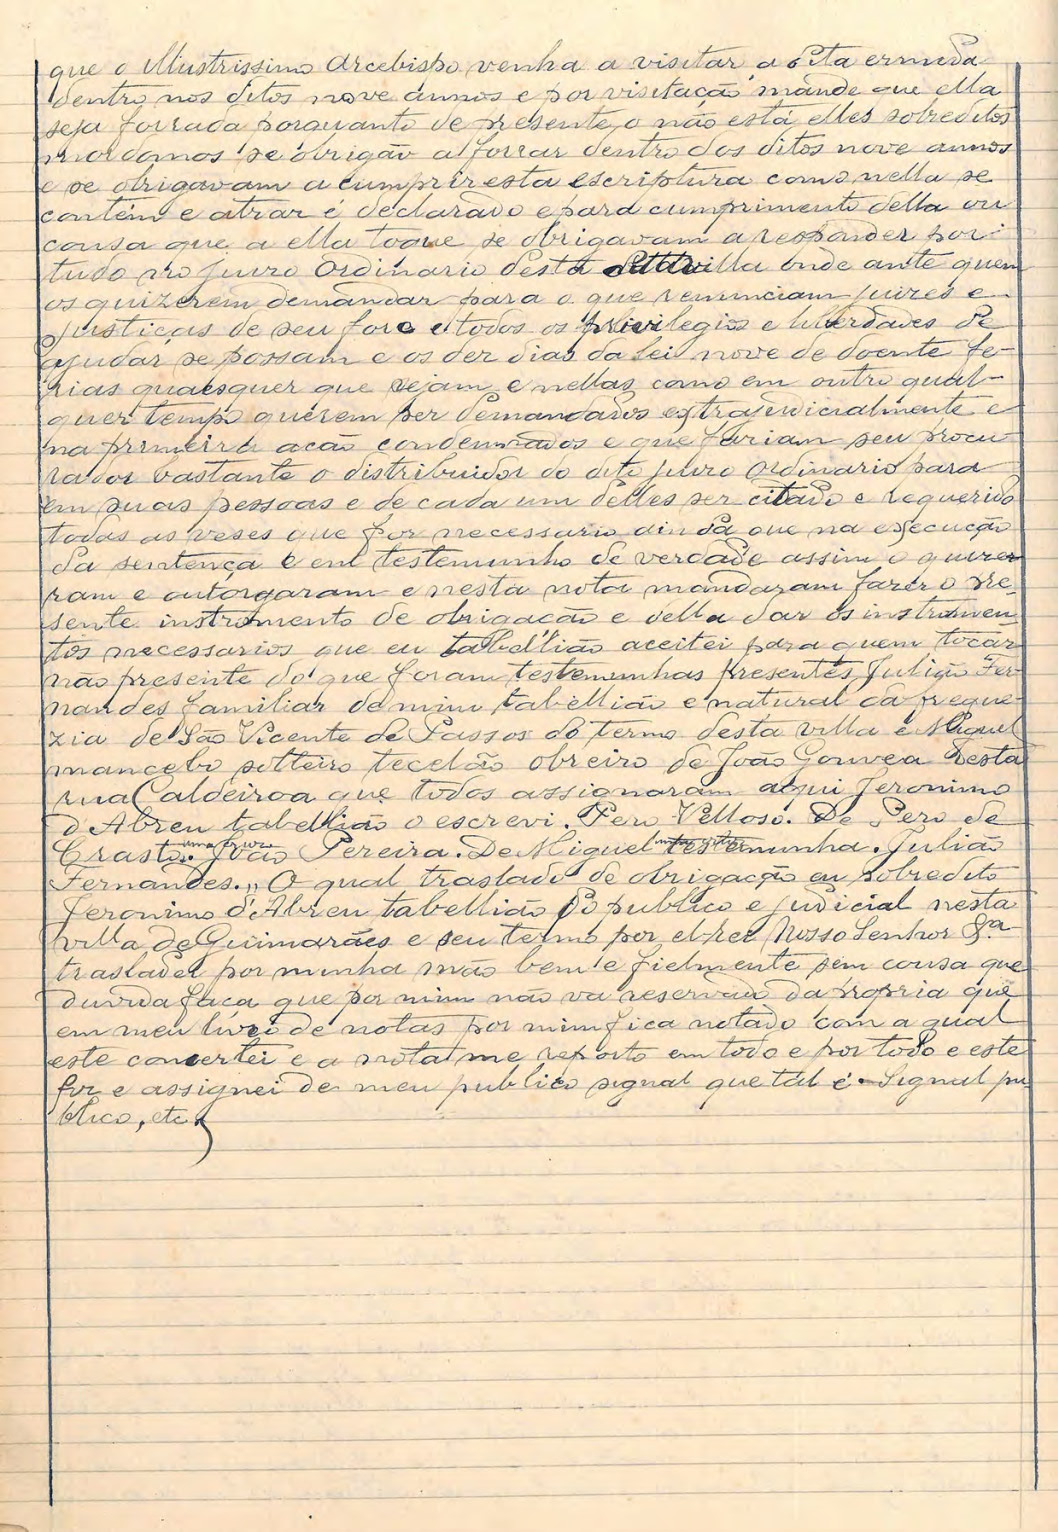 que o Illustrissimo Arcebispo venha a visitar a dita ermida
dentro nos ditos nove annos e por visitação mande que ella
seja forrada porquanto de presente o não está elles sobreditos
mordomos se obrigão a forrar dentro dos ditos nove annos
e se obrigavam a cumprir esta escriptura como nella se
contém e atraz é declarado e para cumprimento della ou
cousa que a ella toque se obrigavam a responder por
tudo no juizo ordinario desta villa onde ante quem
os quizerem demandar para o que renunciam juizes e
justiças de seu foro e todos os privilegios e liberdades de
ajudar se possam e os dez dias da lei nove de doente fe-
rias quaesquer que sejam e nellas como em outro qual-
quer tempo querem ser demandados extrajudicialmente e
na primeira acão condemnados e que fariam seu procu-
rador bastante o distribuidor do dito juizo ordinario para
em suas pessoas e de cada um delles ser citado e requerido
todas as veses que for necessario ainda que na execução
da sentença e em testemunho de verdade assim o quize-
ram e outorgaram e nesta nota mandaram fazer o pre-
sente instromento de obrigação e della dar os instromen-
tos necessarios que eu tabellião aceitei para quem tocar
não presente do que foram testemunhas presentes Julião Fer-
nandes familiar de mim tabellião e natural da fregue-
zia de São Vicente de Passos do termo desta villa e Miguel
mancebo solteiro tecelão obreiro de João Gouvea desta
rua Caldeiroa que todos assignaram aqui Jeronimo
d'Abreu tabellião o escrevi. Pero Velloso. De Pero de
Crasto uma cruz. João Pereira. De Miguel testemunha. Julião
Fernandes.,, O qual traslado de obrigação eu sobredito
Jeronimo d'Abreu tabellião do publico e judicial nesta
villa de Guimarães e seu termo por el-rei Nosso Senhor &ª
trasladei por minha mão bem e fielmente sem cousa que
duvida faça que por mim não va reservado da propria que
em meu livro de notas por mim fica notado com a qual
este concertei e a nota me reporto em todo e por todo e este
fiz e assignei de meu publico signal que tal é - Signal pu-
blico, etc.